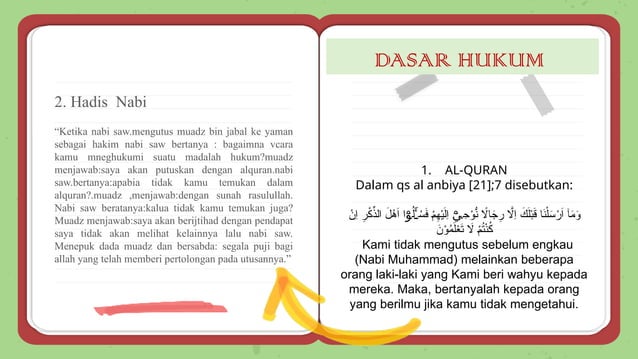 2. Hadis Nabi
“Ketika nabi saw.mengutus muadz bin jabal ke yaman
sebagai hakim nabi saw bertanya : bagaimna vcara
kamu mneghukumi suatu madalah hukum?muadz
menjawab:saya akan putuskan dengan alquran.nabi
saw.bertanya:apabia tidak kamu temukan dalam
alquran?.muadz ,menjawab:dengan sunah rasulullah.
Nabi saw beratanya:kalua tidak kamu temukan juga?
Muadz menjawab:saya akan berijtihad dengan pendapat
saya tidak akan melihat kelainnya lalu nabi saw.
Menepuk dada muadz dan bersabda: segala puji bagi
allah yang telah memberi pertolongan pada utusannya.”
DASAR HUKUM
1. AL-QURAN
Dalam qs al anbiya [21];7 disebutkan:
وَمَآ اَرْسَلْنَا قَبْلَكَ اِلَّا رِجَالًا نُّوْحِيْٓ اِلَيْهِمْ فَسْـَٔلُوْٓا اَهْلَ الذِّكْرِ اِنْ
كُنْتُمْ لَا تَعْلَمُوْنَ
Kami tidak mengutus sebelum engkau
(Nabi Muhammad) melainkan beberapa
orang laki-laki yang Kami beri wahyu kepada
mereka. Maka, bertanyalah kepada orang
yang berilmu jika kamu tidak mengetahui.